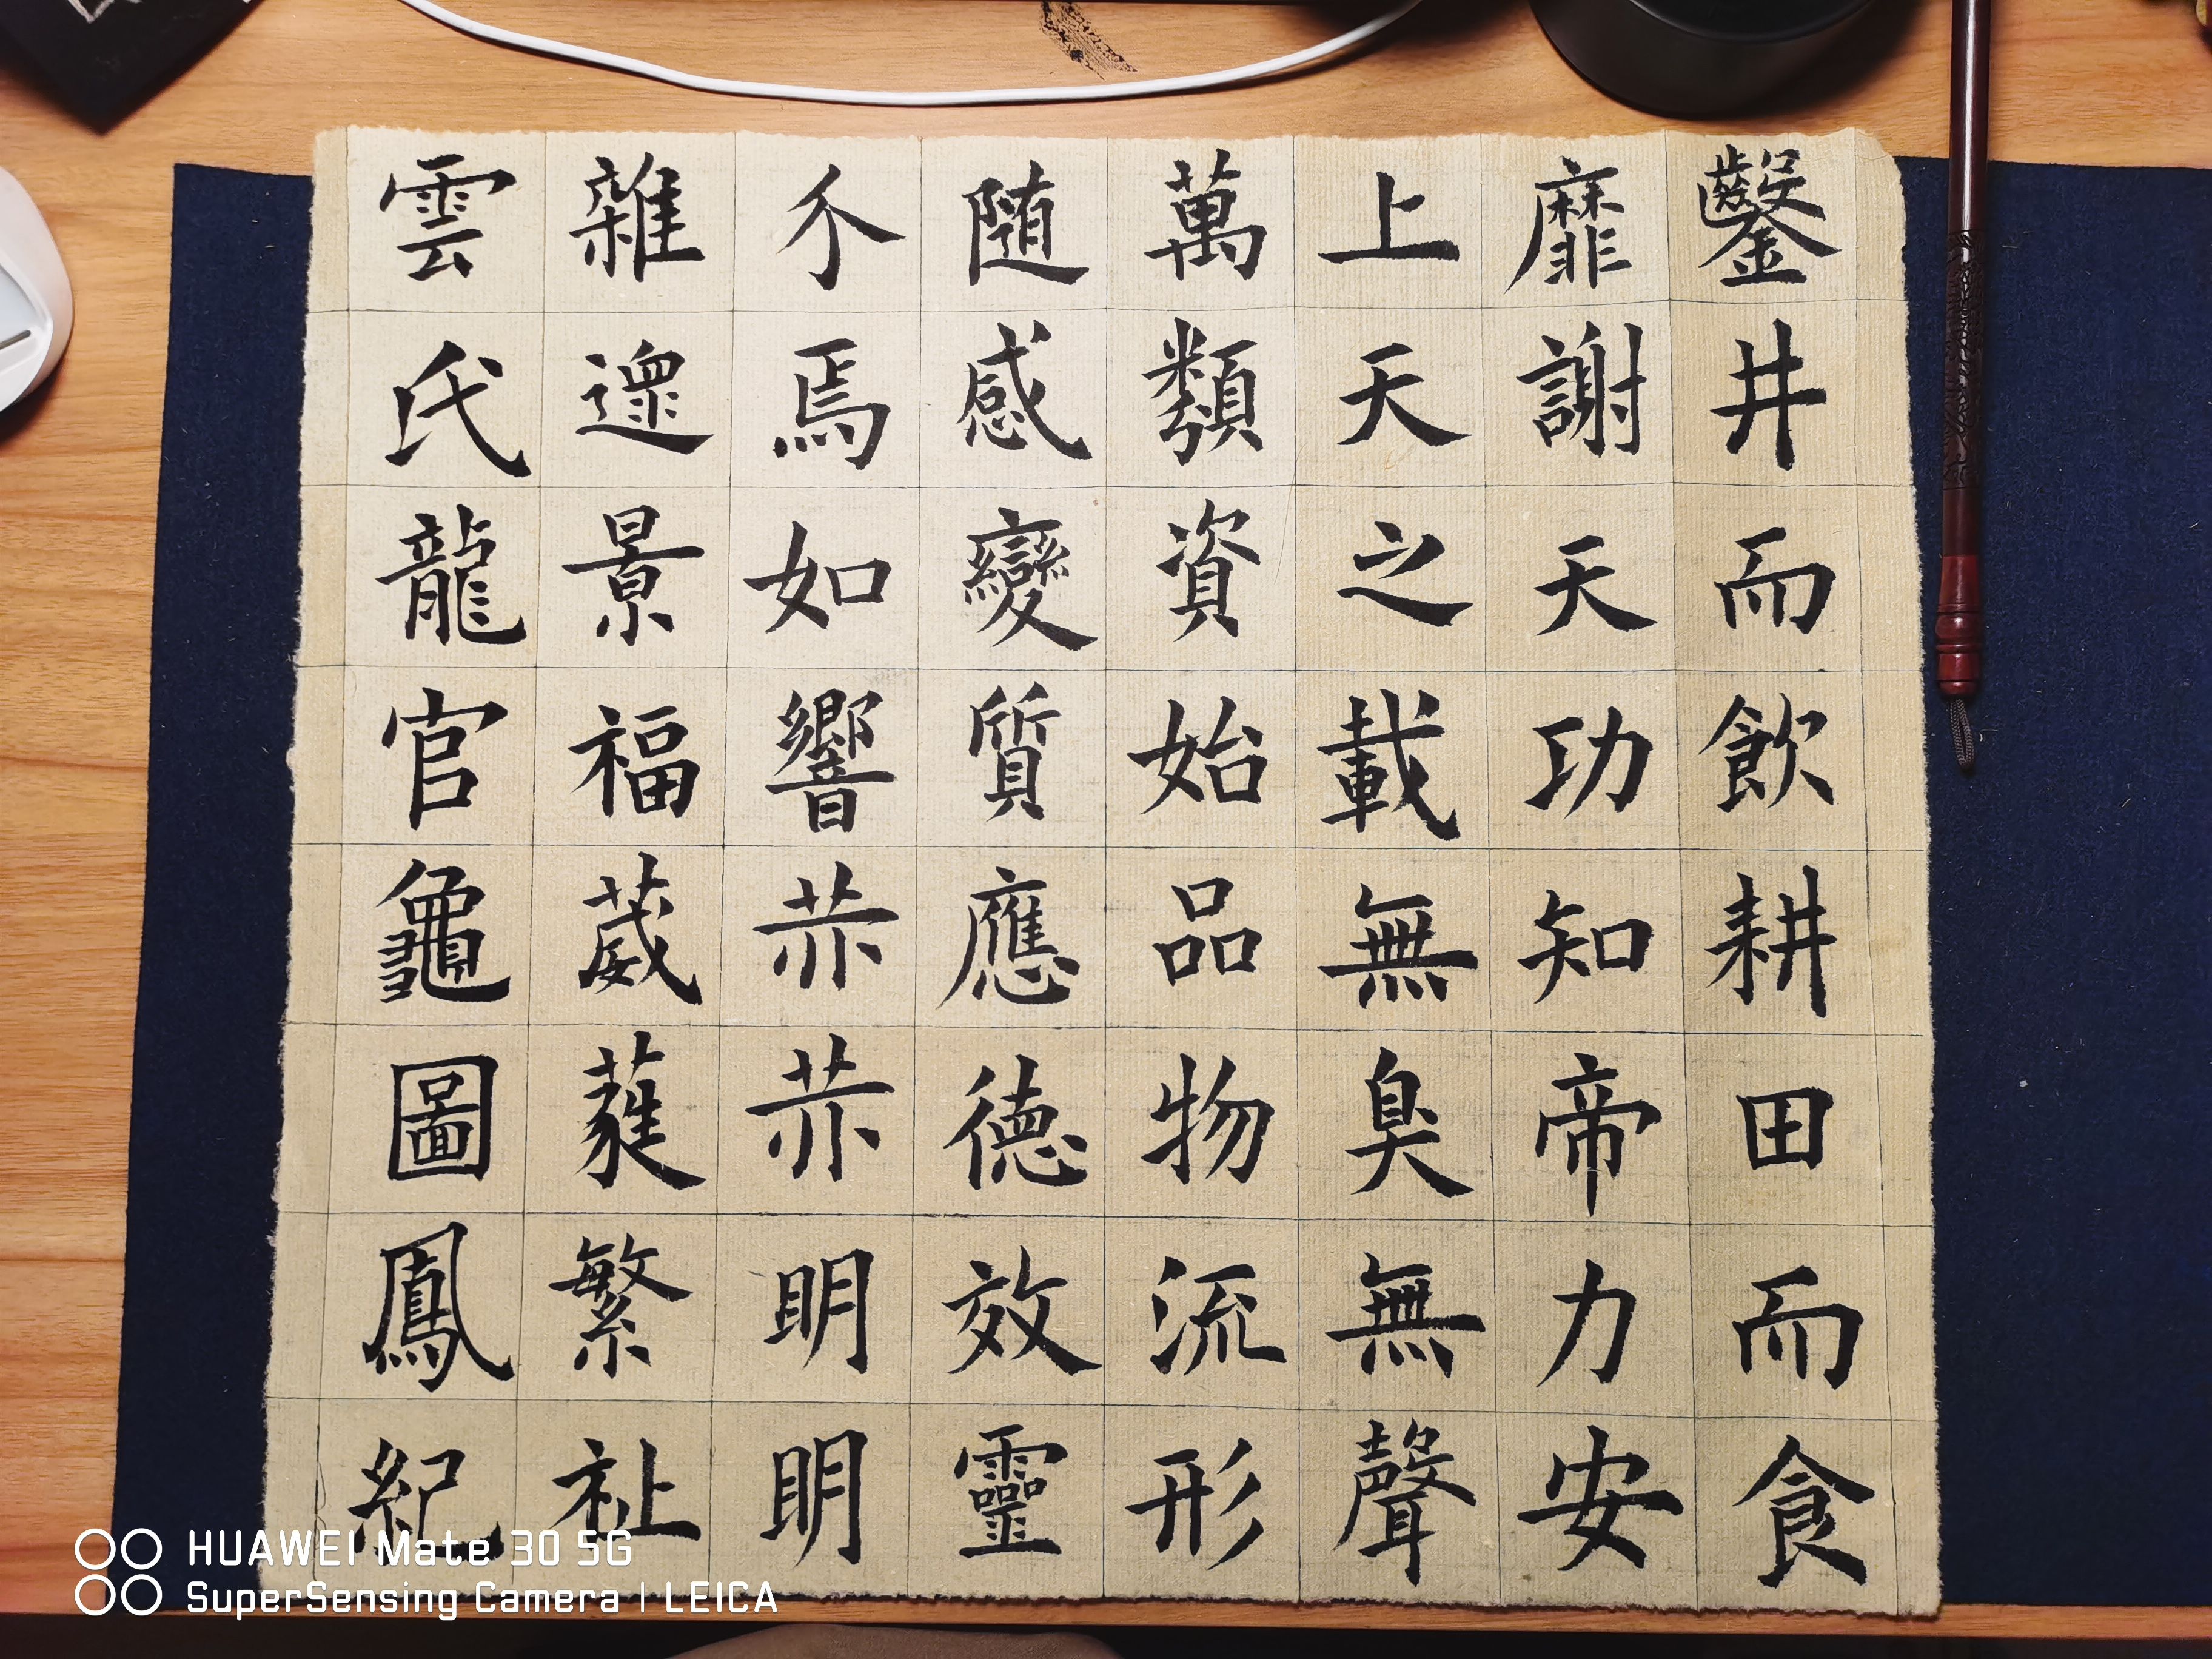 鑿井而飲耕田而食
靡謝天功知帝力安
上天之載無臭無聲
萬類資始品物流形
随感變質應德效靈
介焉如響赫赫明明
雜遝景福葳蕤繁祉
雲氏龍官龜圖鳳紀
HUAWEI Mate 30 5G
SuperSensing Camera | LEICA